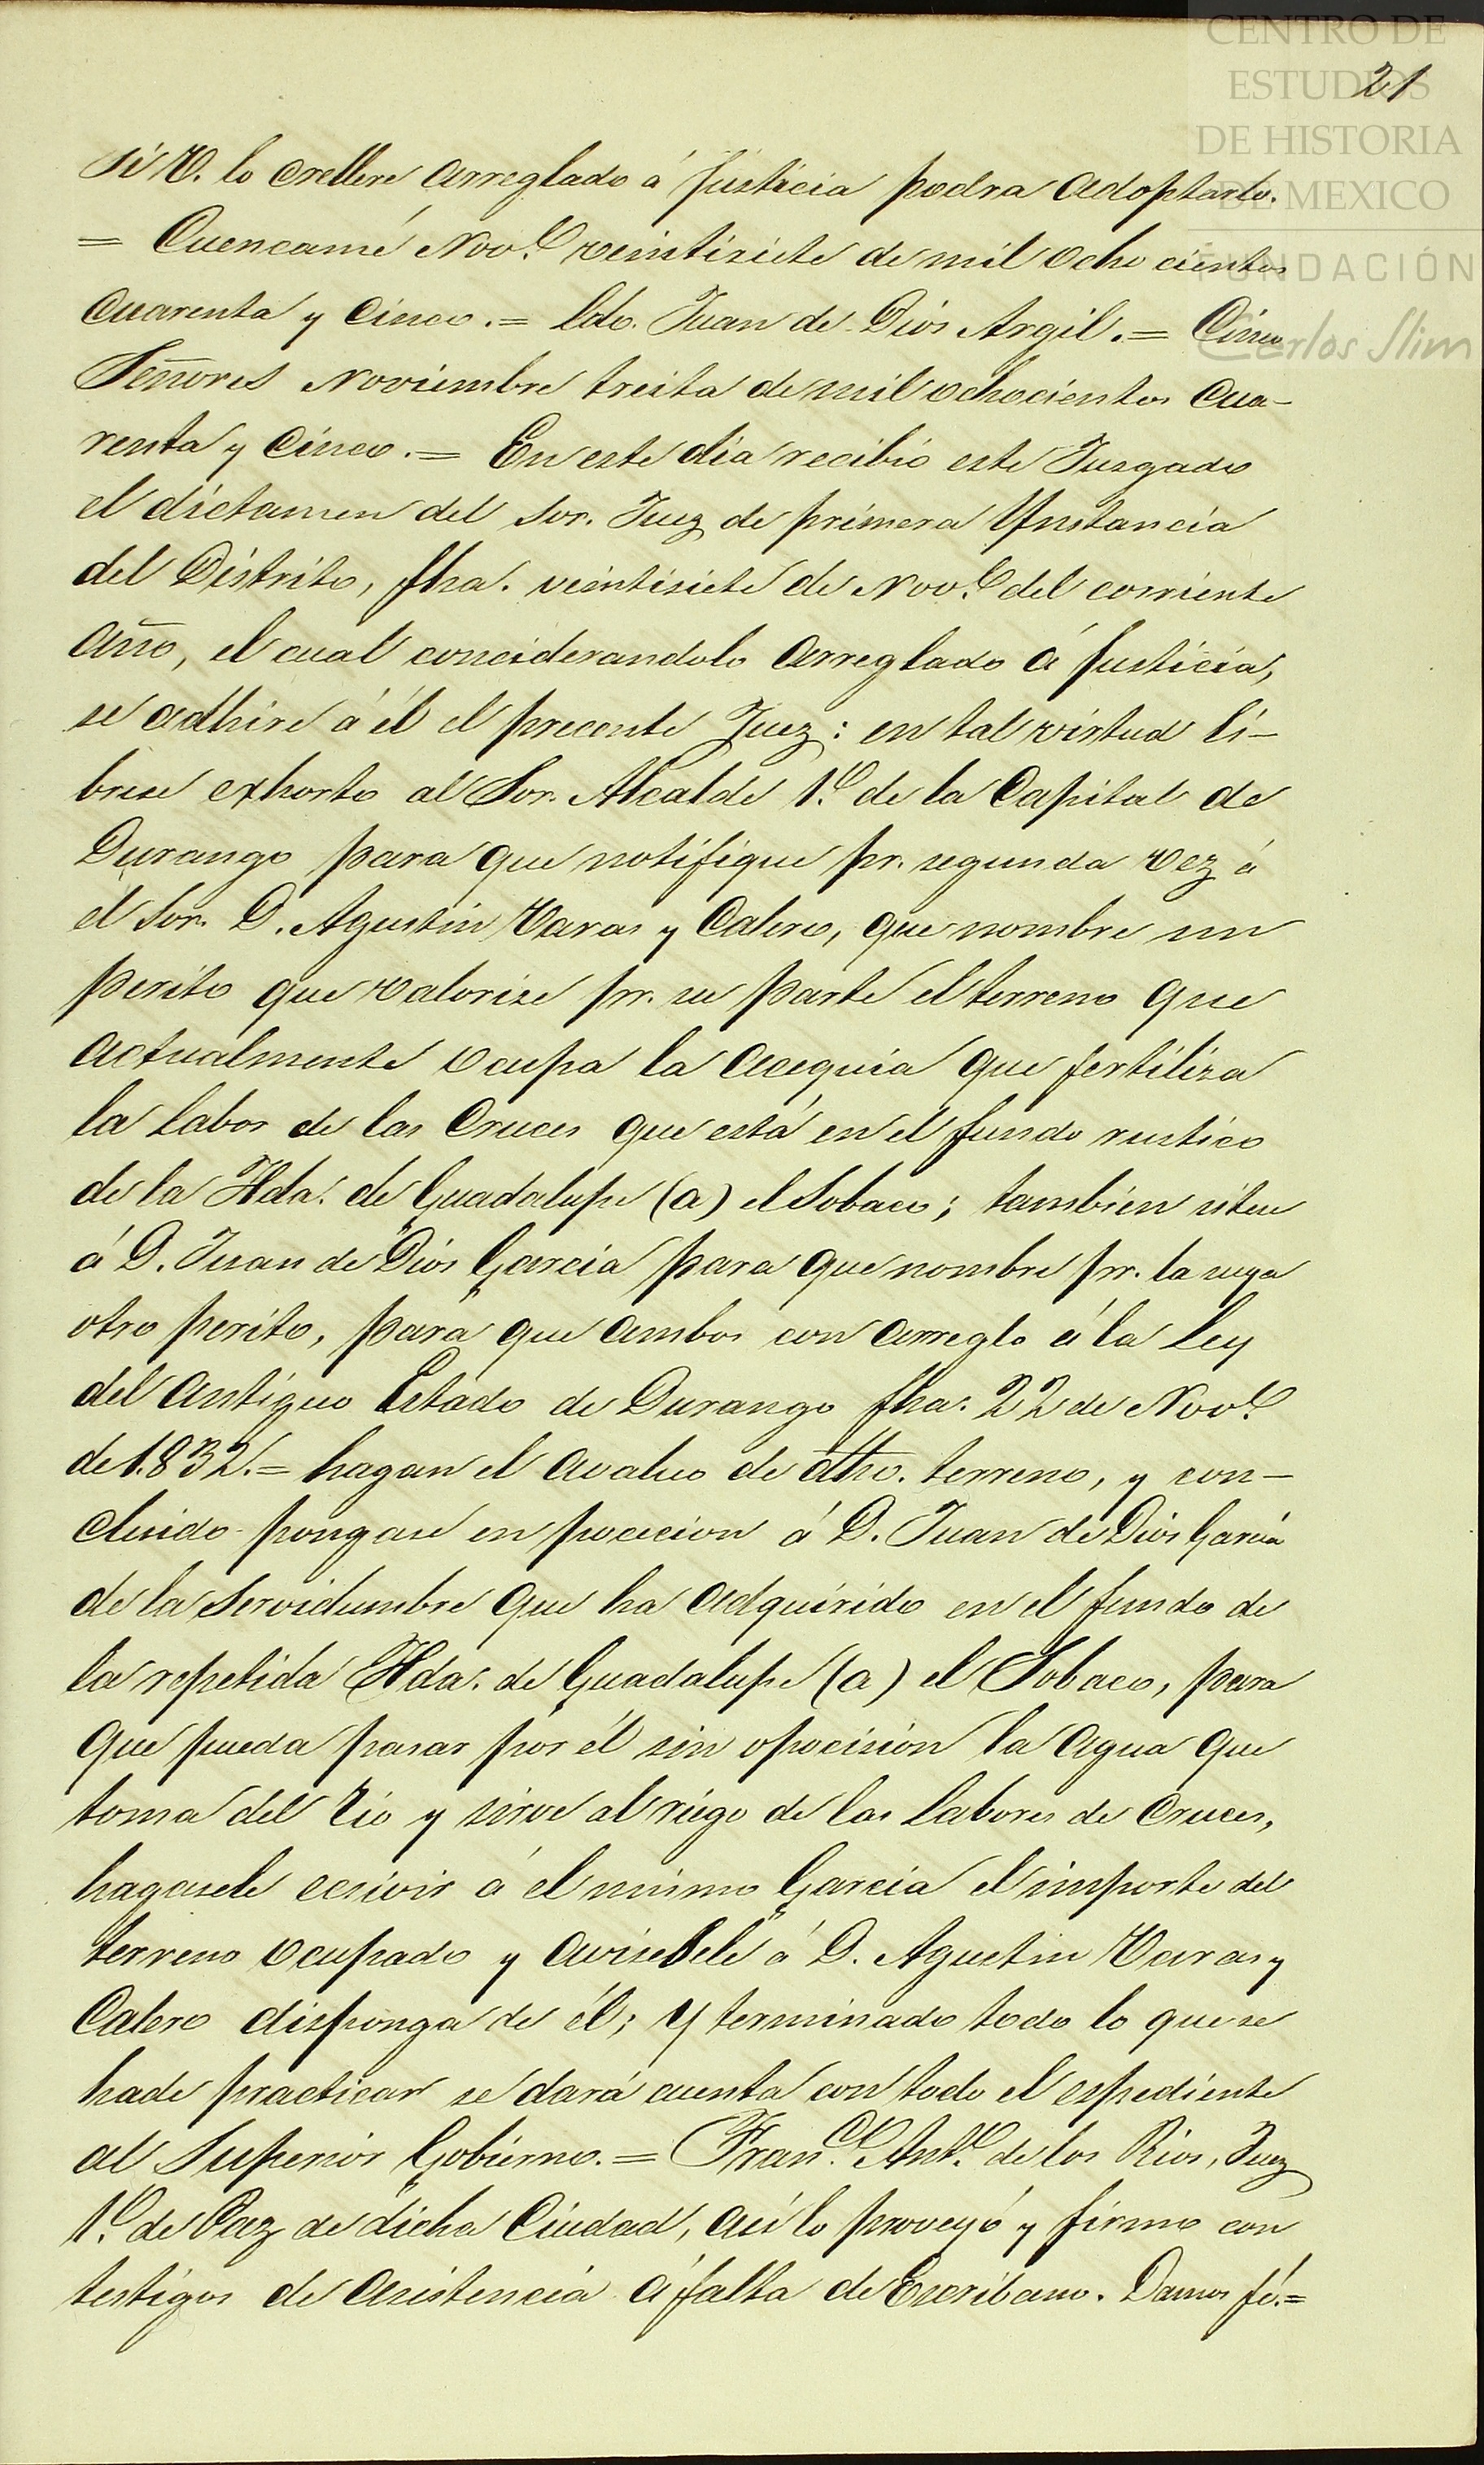 CENTRO DE
ESTUDIOS
DE HISTORIA
DE MEXICO
FUNDACIÓN
Carlos Slim
21
Si V. lo crellere arreglado á justicia podra adoptarlo.
= Cuencamé Nov.e veintisiete de mil ocho cientos
cuarenta y cinco.= Ldo. Juan de Dios Argil.= Cinco
Señores Noviembre treita de mil ochocientos cua-
renta y cinco.= En este dia recibió este Jusgado
el dictamen del Sor. Juez de primera Ynstancia
del Distrito, fha. veintisiete de Nov.e del corriente
año, el cual conciderandolo arreglado á justicia,
se adhire á él el precente Juez: en tal virtud lí-
brese exhorto al Sor. Alcalde 1.o de la Capital de
Durango para que notifique pr. segunda vez á
el Sor. D. Agustin Varas y Calero, que nombre un
perito que valorise pr. su parte el terreno que
actualmente ocupa la acequia que fertiliza
la Labor de las Cruces que está en el fundo rustico
de la Hda. de Guadalupe (a) el Sobaco; también sítese
á D. Juan de Dios Garcia para que nombre pr. la suya
otro perito, para que ambos con arreglo á la Ley
del antiguo Estado de Durango fha. 22 de Nov.e
de 1.832.= hagan el avaluo de dho. terreno, y con-
cluido pongase en pocecion á D. Juan de Dios Garcia
de la Servidumbre que ha adquirido en el fundo de
la repetida Hda. de Guadalupe (a) el Sobaco, para
que pueda pasar por él sin oposición la agua que
toma del Rio y sirve al riego de las Labores de Cruces,
hagasele ecsivir á el mismo Garcia el importe del
terreno ocupado y avisesele á D. Agustin Varas y
Calero disponga de él; y terminado todo lo que se
hade practicar se dará cuenta con todo el espediente
al Superior Gobierno.= Fran.co Ant.o de los Rios, Juez
1.o de Paz de dicha Ciudad, así lo proveyó y firmo con
testigos de asistencia á falta de Escribano. Damos fé.=